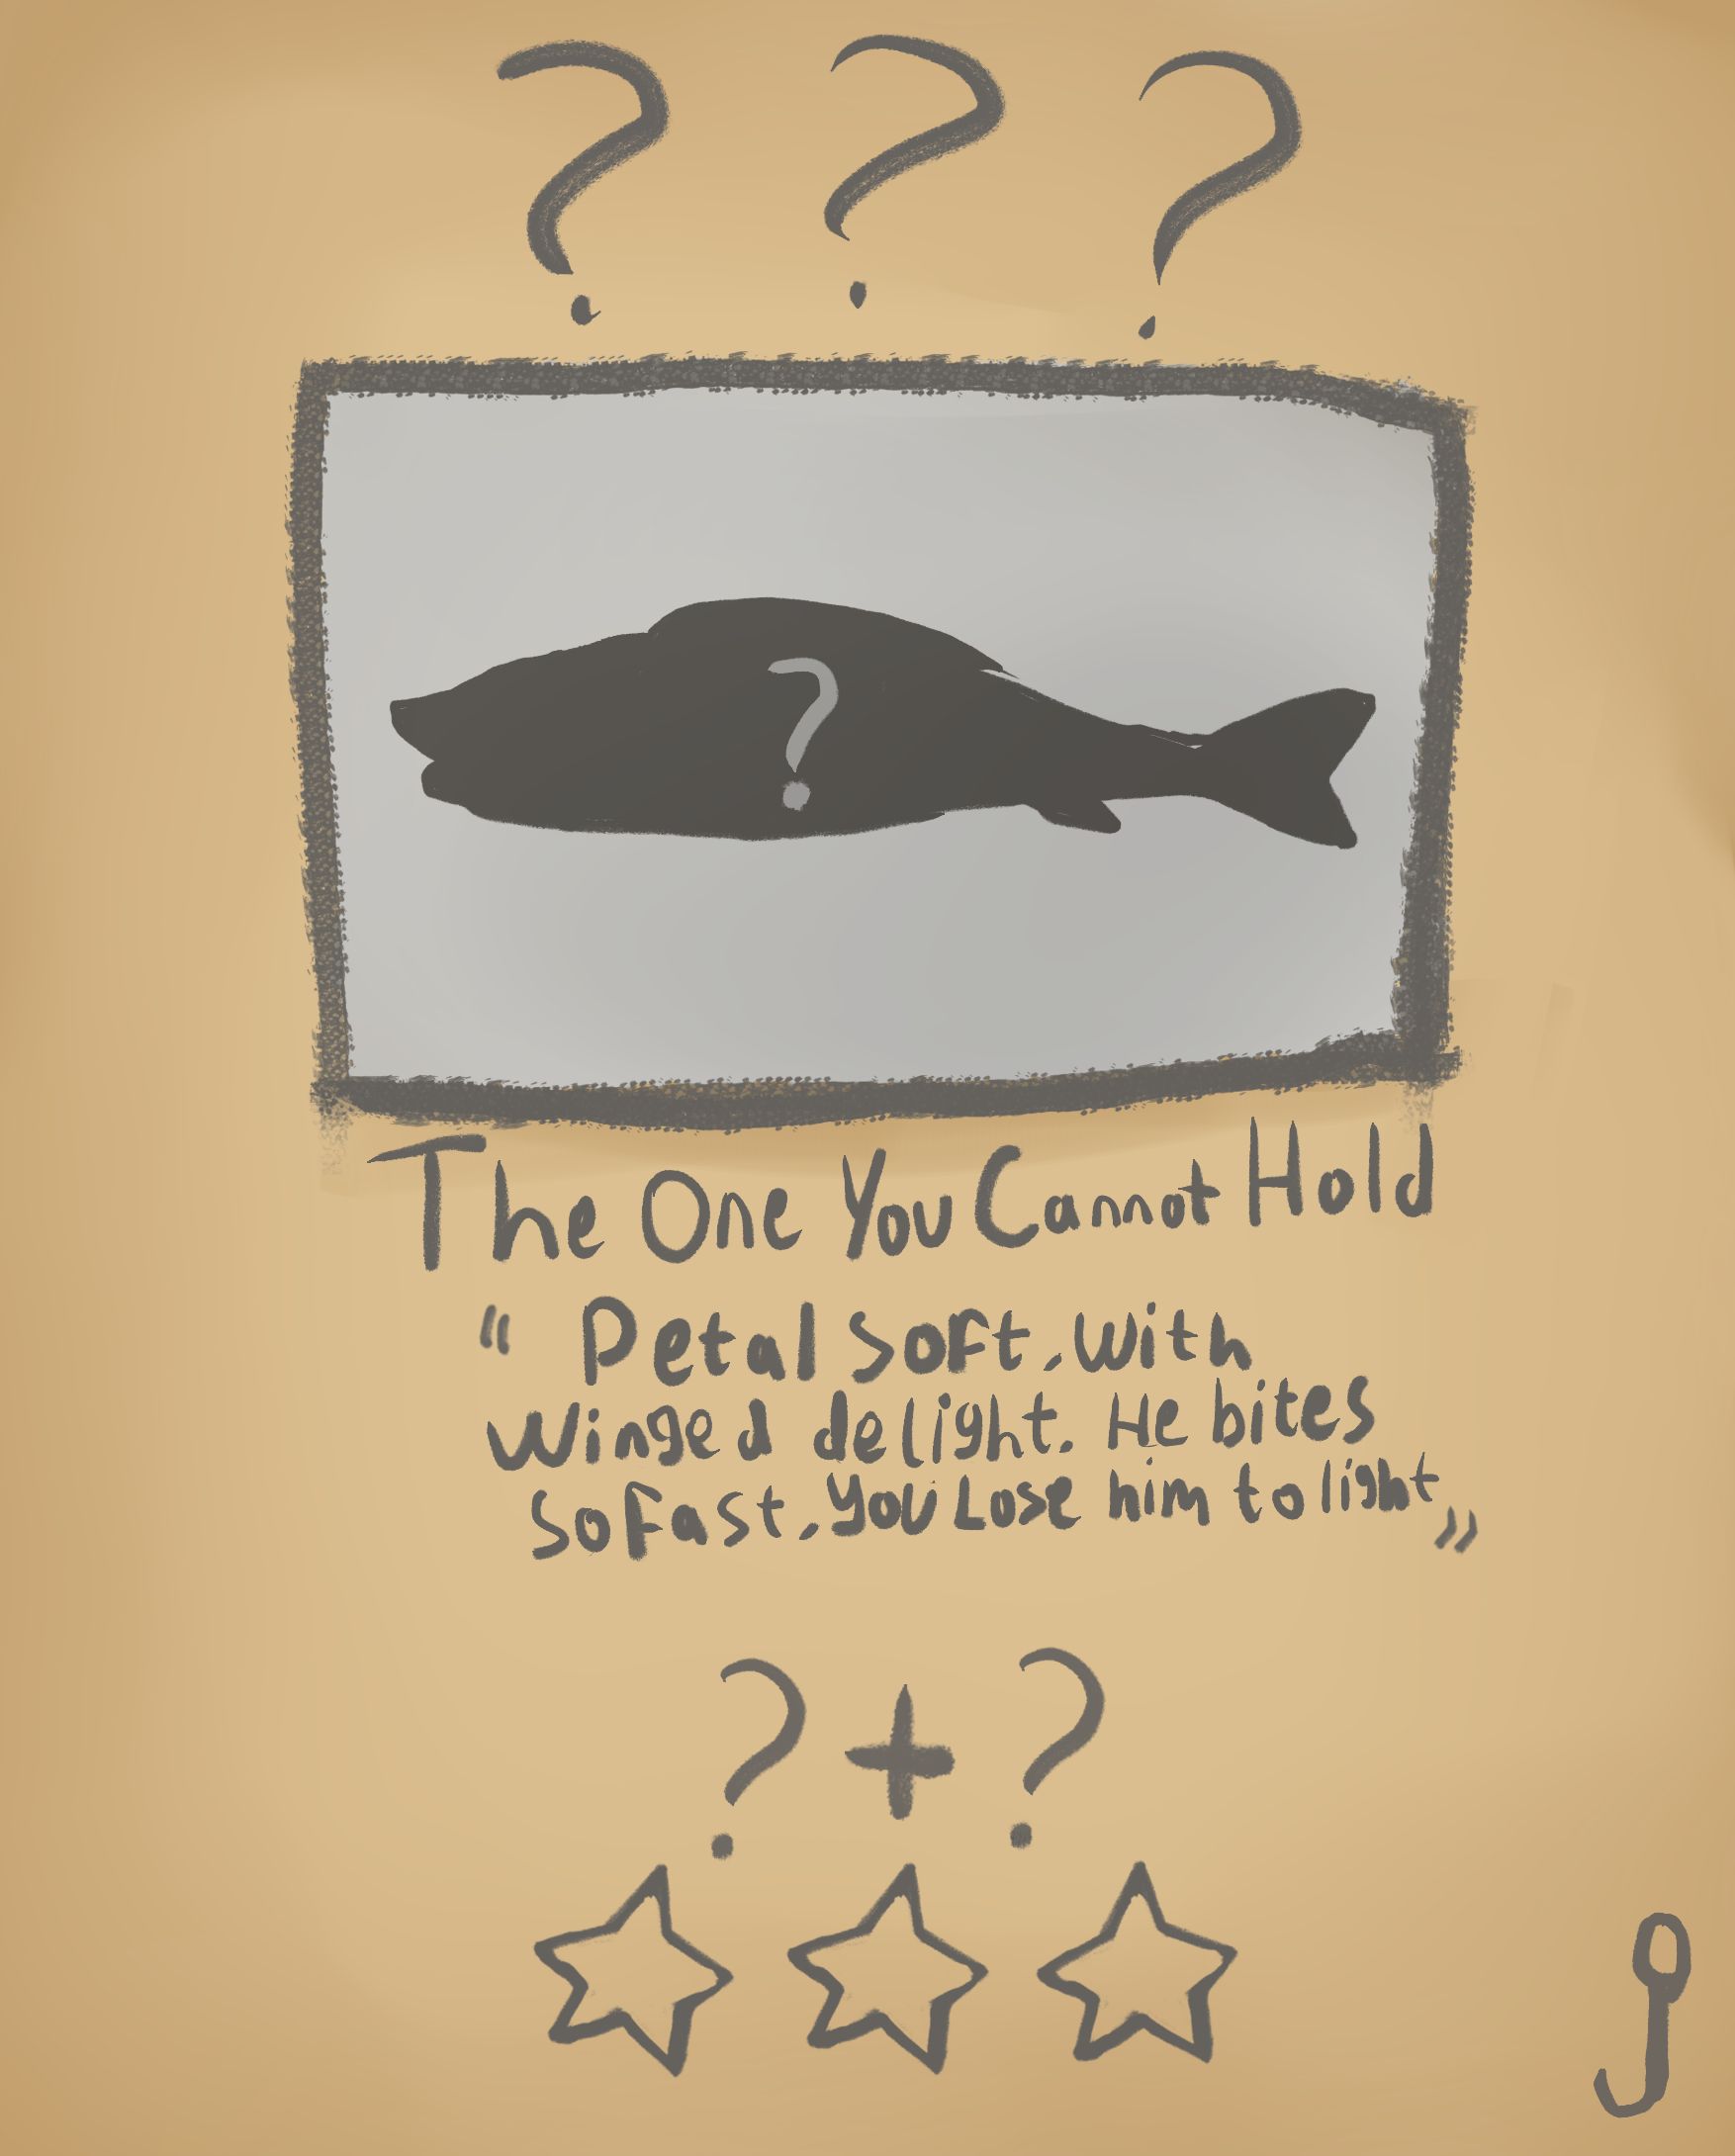 ? ? ?
?
The One You Cannot Hold
“ Petal soft, with
Winged delight. He bites
so fast, you Lose him to light ”
? + ?